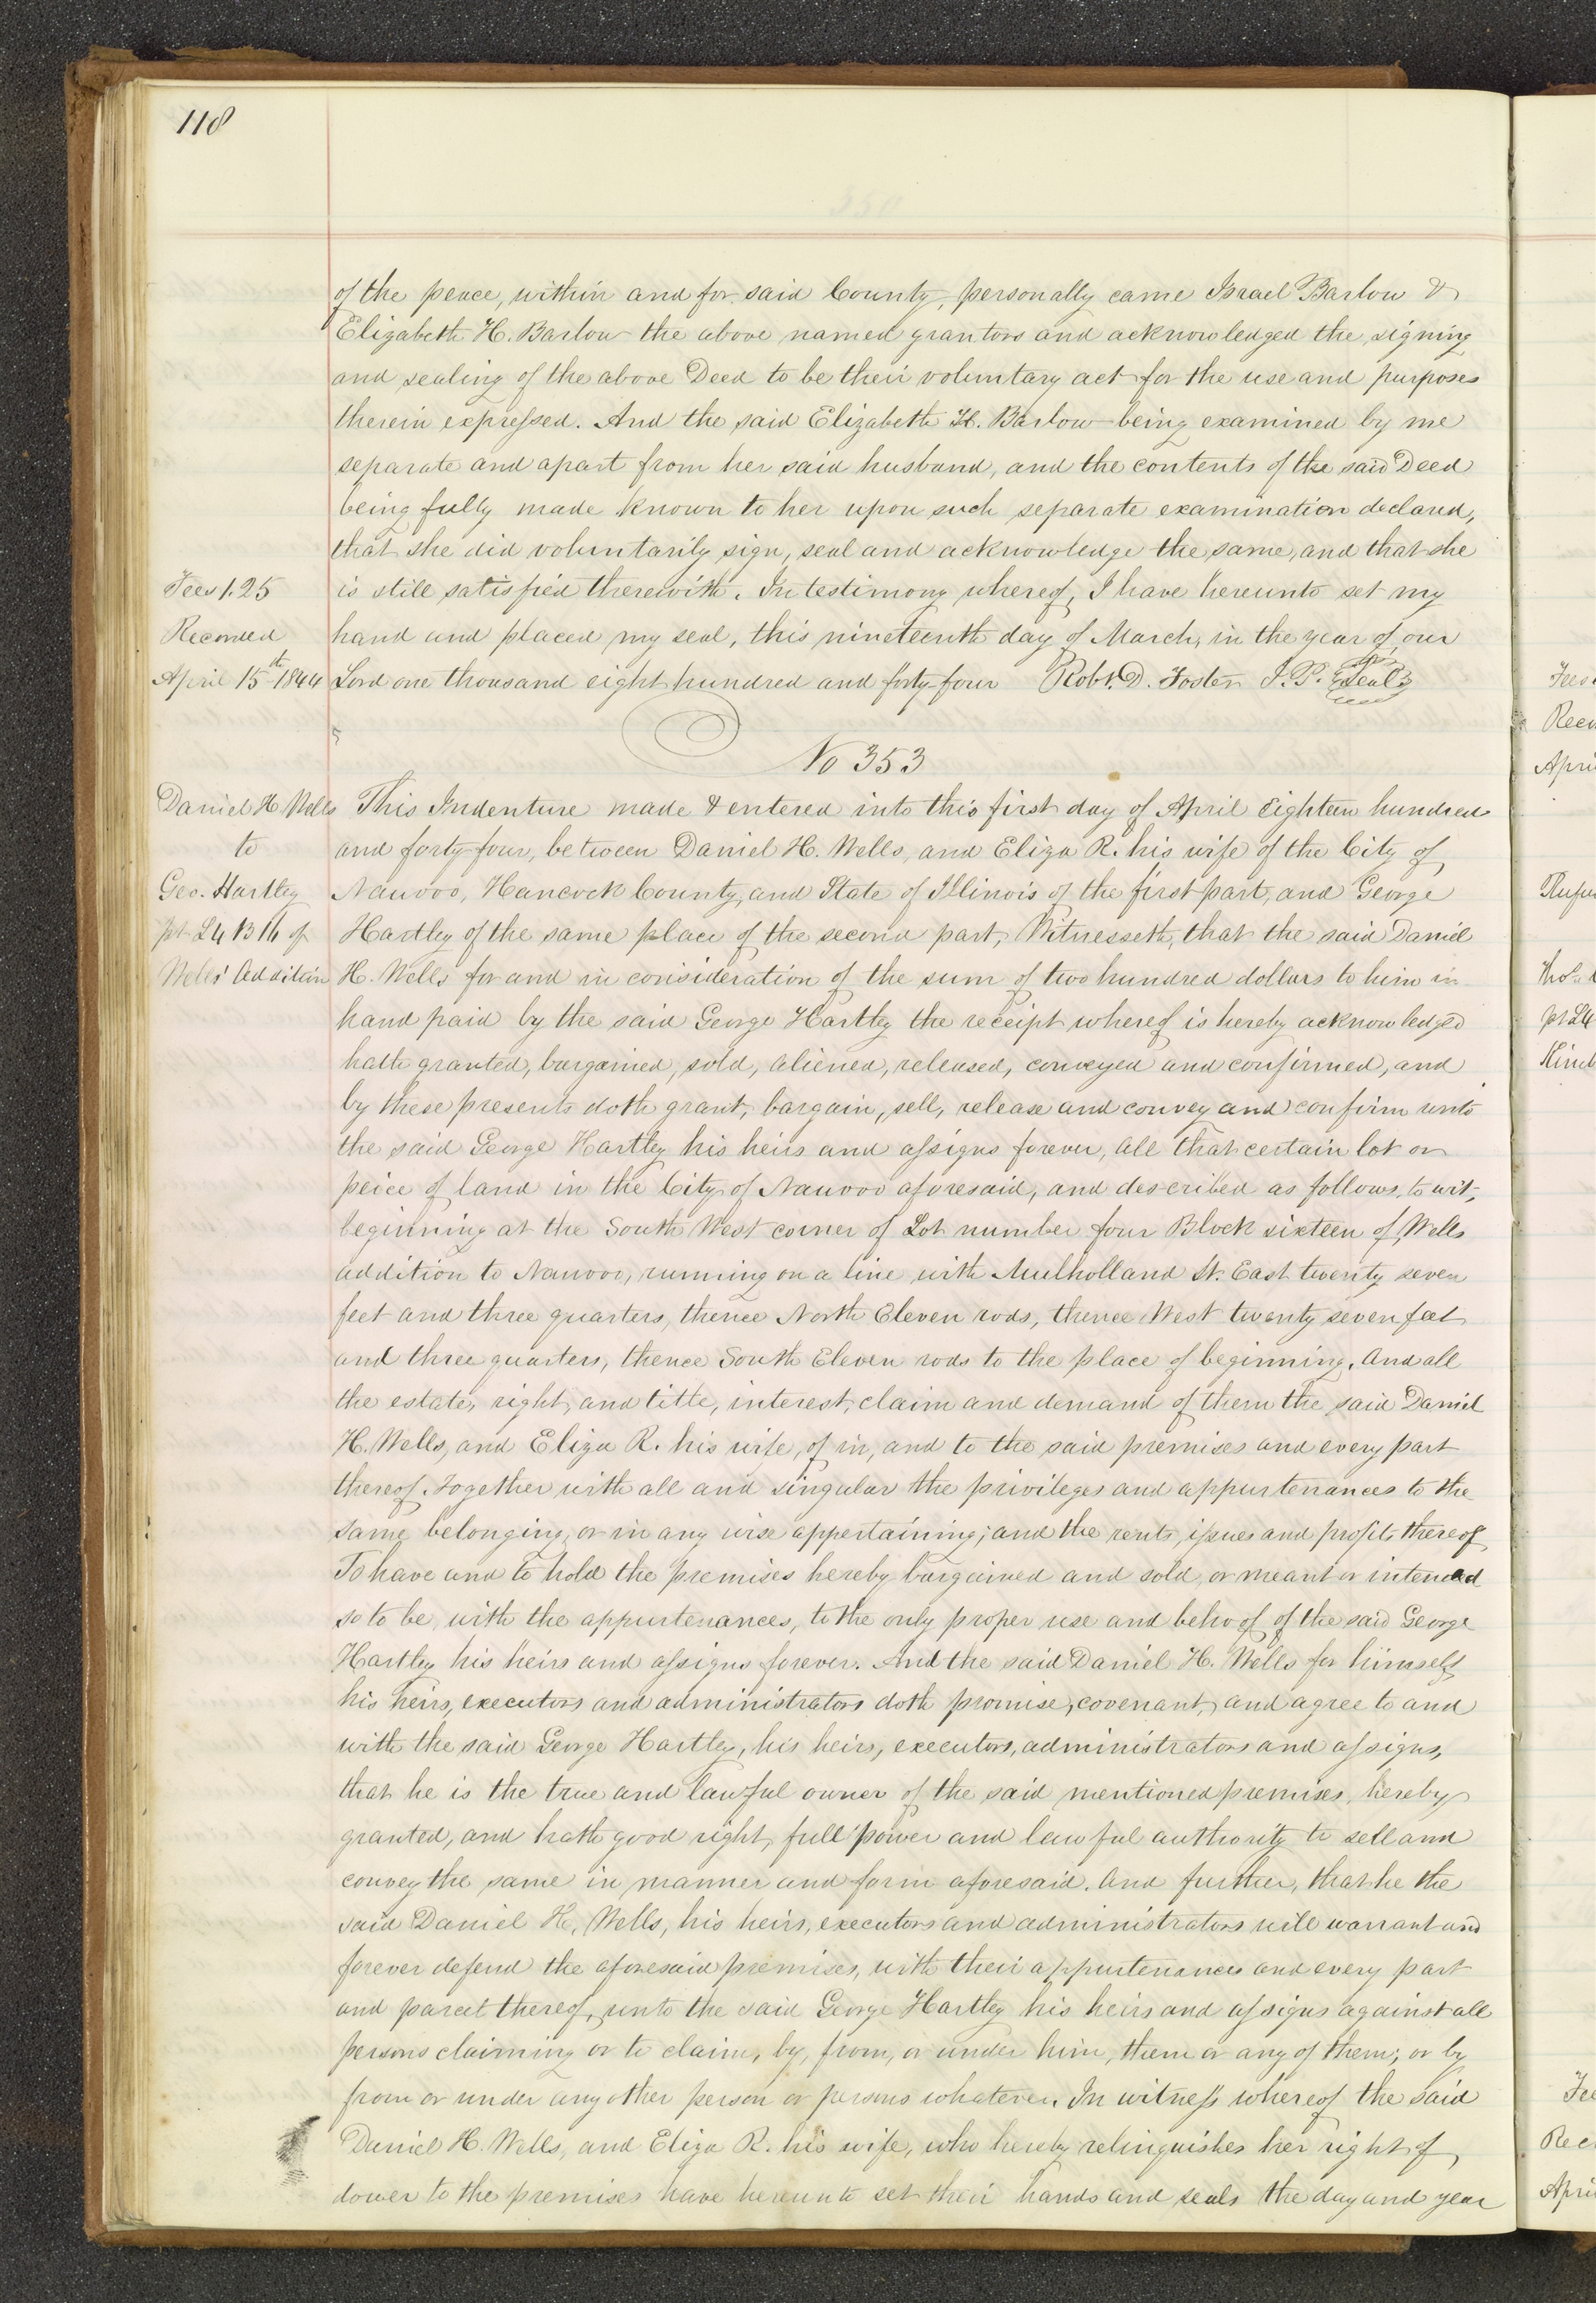 118
of the peace, within and for said County, personally came Israel Barlow &
Elizabeth H. Barlow the above named grantors and acknowledged the signing
and sealing of the above Deed to be their voluntary act for the use and purposes
therein expressed. And the said Elizabeth H. Barlow being examined by me
separate and apart from her said husband, and the contents of the said Deed
being fully made known to her upon such separate examination declared,
that she did voluntarily sign, seal and acknowledge the same, and that she
Fees 1.25
is still satisfied therewith. In testimony whereof, I have hereunto set my
Recorded
hand and placed my seal, this nineteenth day of March, in the year of our
April 15th 1844
Lord one thousand eight hundred and forty-four Robt. D. Foster J. P. Seal
No 353
Daniel H. Wells
to
Geo. Hartley
pt L4 B 16 of
Wells' Addition
This Indenture made & entered into this first day of April Eighteen hundred
and forty-four, between Daniel H. Wells, and Eliza R. his wife of the City of
Nauvoo, Hancock County, and State of Illinois of the first part, and George
Hartley of the same place of the second part, Witnesseth, that the said Daniel
H. Wells for and in consideration of the sum of two hundred dollars to him in
hand paid by the said George Hartley the receipt whereof is hereby acknowledged
hath granted, bargained, sold, aliened, released, conveyed and confirmed, and
by these presents doth grant, bargain, sell, release and convey and confirm unto
the said George Hartley his heirs and assigns forever, all that certain lot or
peice of land in the City of Nauvoo aforesaid, and described as follows, to wit,
beginning at the South West corner of Lot number four Block sixteen of Wells
addition to Nauvoo, running on a line with Mulholland St. East twenty seven
feet and three quarters, thence North Eleven rods, thence West twenty seven feet
and three quarters, thence South Eleven rods to the place of beginning. And all
the estate, right, and title, interest, claim and demand of them the said Daniel
H. Wells, and Eliza R. his wife, of in, and to the said premises and every part
thereof. Together with all and singular the privileges and appurtenances to the
same belonging, or in any wise appertaining; and the rents, issues and profits thereof
To have and to hold the premises hereby bargained and sold, or meant or intended
so to be, with the appurtenances, to the only proper use and behoof of the said George
Hartley his heirs and assigns forever. And the said Daniel H. Wells for himself
his heirs, executors and administrators doth promise, covenant, and agree to and
with the said George Hartley, his heirs, executors, administrators and assigns,
that he is the true and lawful owner of the said mentioned premises, hereby
granted, and hath good right, full power and lawful authority to sell and
convey the same in manner and form aforesaid. And further, that he the
said Daniel H. Wells, his heirs, executors and administrators will warrant and
forever defend the aforesaid premises, with their appurtenances and every part
and parcel thereof, unto the said George Hartley his heirs and assigns against all
persons claiming or to claim, by, from, or under him, them or any of them; or by
from or under any other person or persons whatever. In witness whereof the said
Daniel H. Wells, and Eliza R. his wife, who hereby relinquishes her right of
dower to the premises have hereunto set their hands and seals the day and year